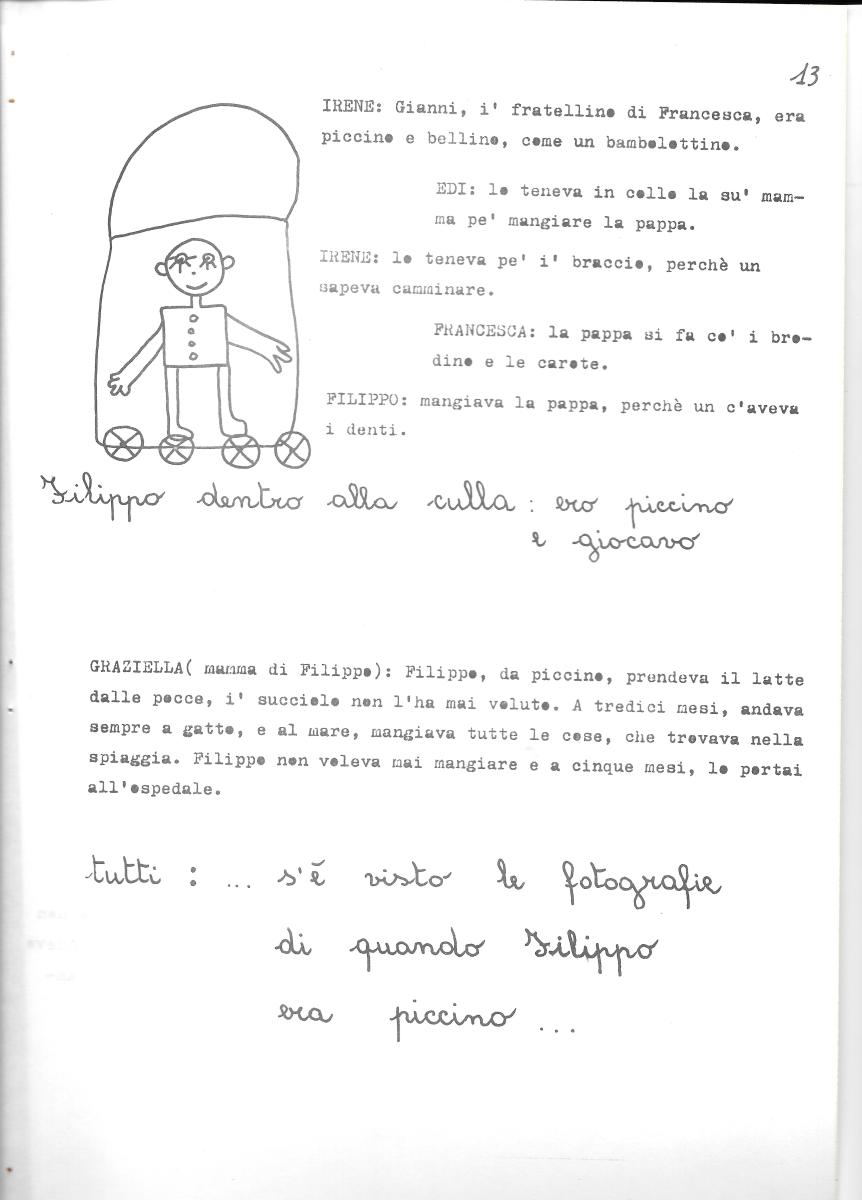 13
IRENE: Gianni, i' fratellino di Francesca, era
piccino e bellino, come un bambolottino.
EDI: lo teneva in collo la su' mam-
ma pe' mangiare la pappa.
IRENE: lo teneva pe' i' braccio, perchè un
sapeva camminare.
FRANCESCA: la pappa si fa co' i bro-
dino e le carote.
FILIPPO: mangiava la pappa, perchè un c'aveva
i denti.
Filippo dentro alla culla: ero piccino
e giocavo
GRAZIELLA( mamma di Filippo): Filippo, da piccino, prendeva il latte
dalle pocce, i' succiolo non l'ha mai voluto. A tredici mesi, andava
sempre a gatto, e al mare, mangiava tutte le cose, che trovava nella
spiaggia. Filippo non voleva mai mangiare e a cinque mesi, lo portai
all'ospedale.
tutti : ... s'è visto le fotografie
di quando Filippo
era piccino ...